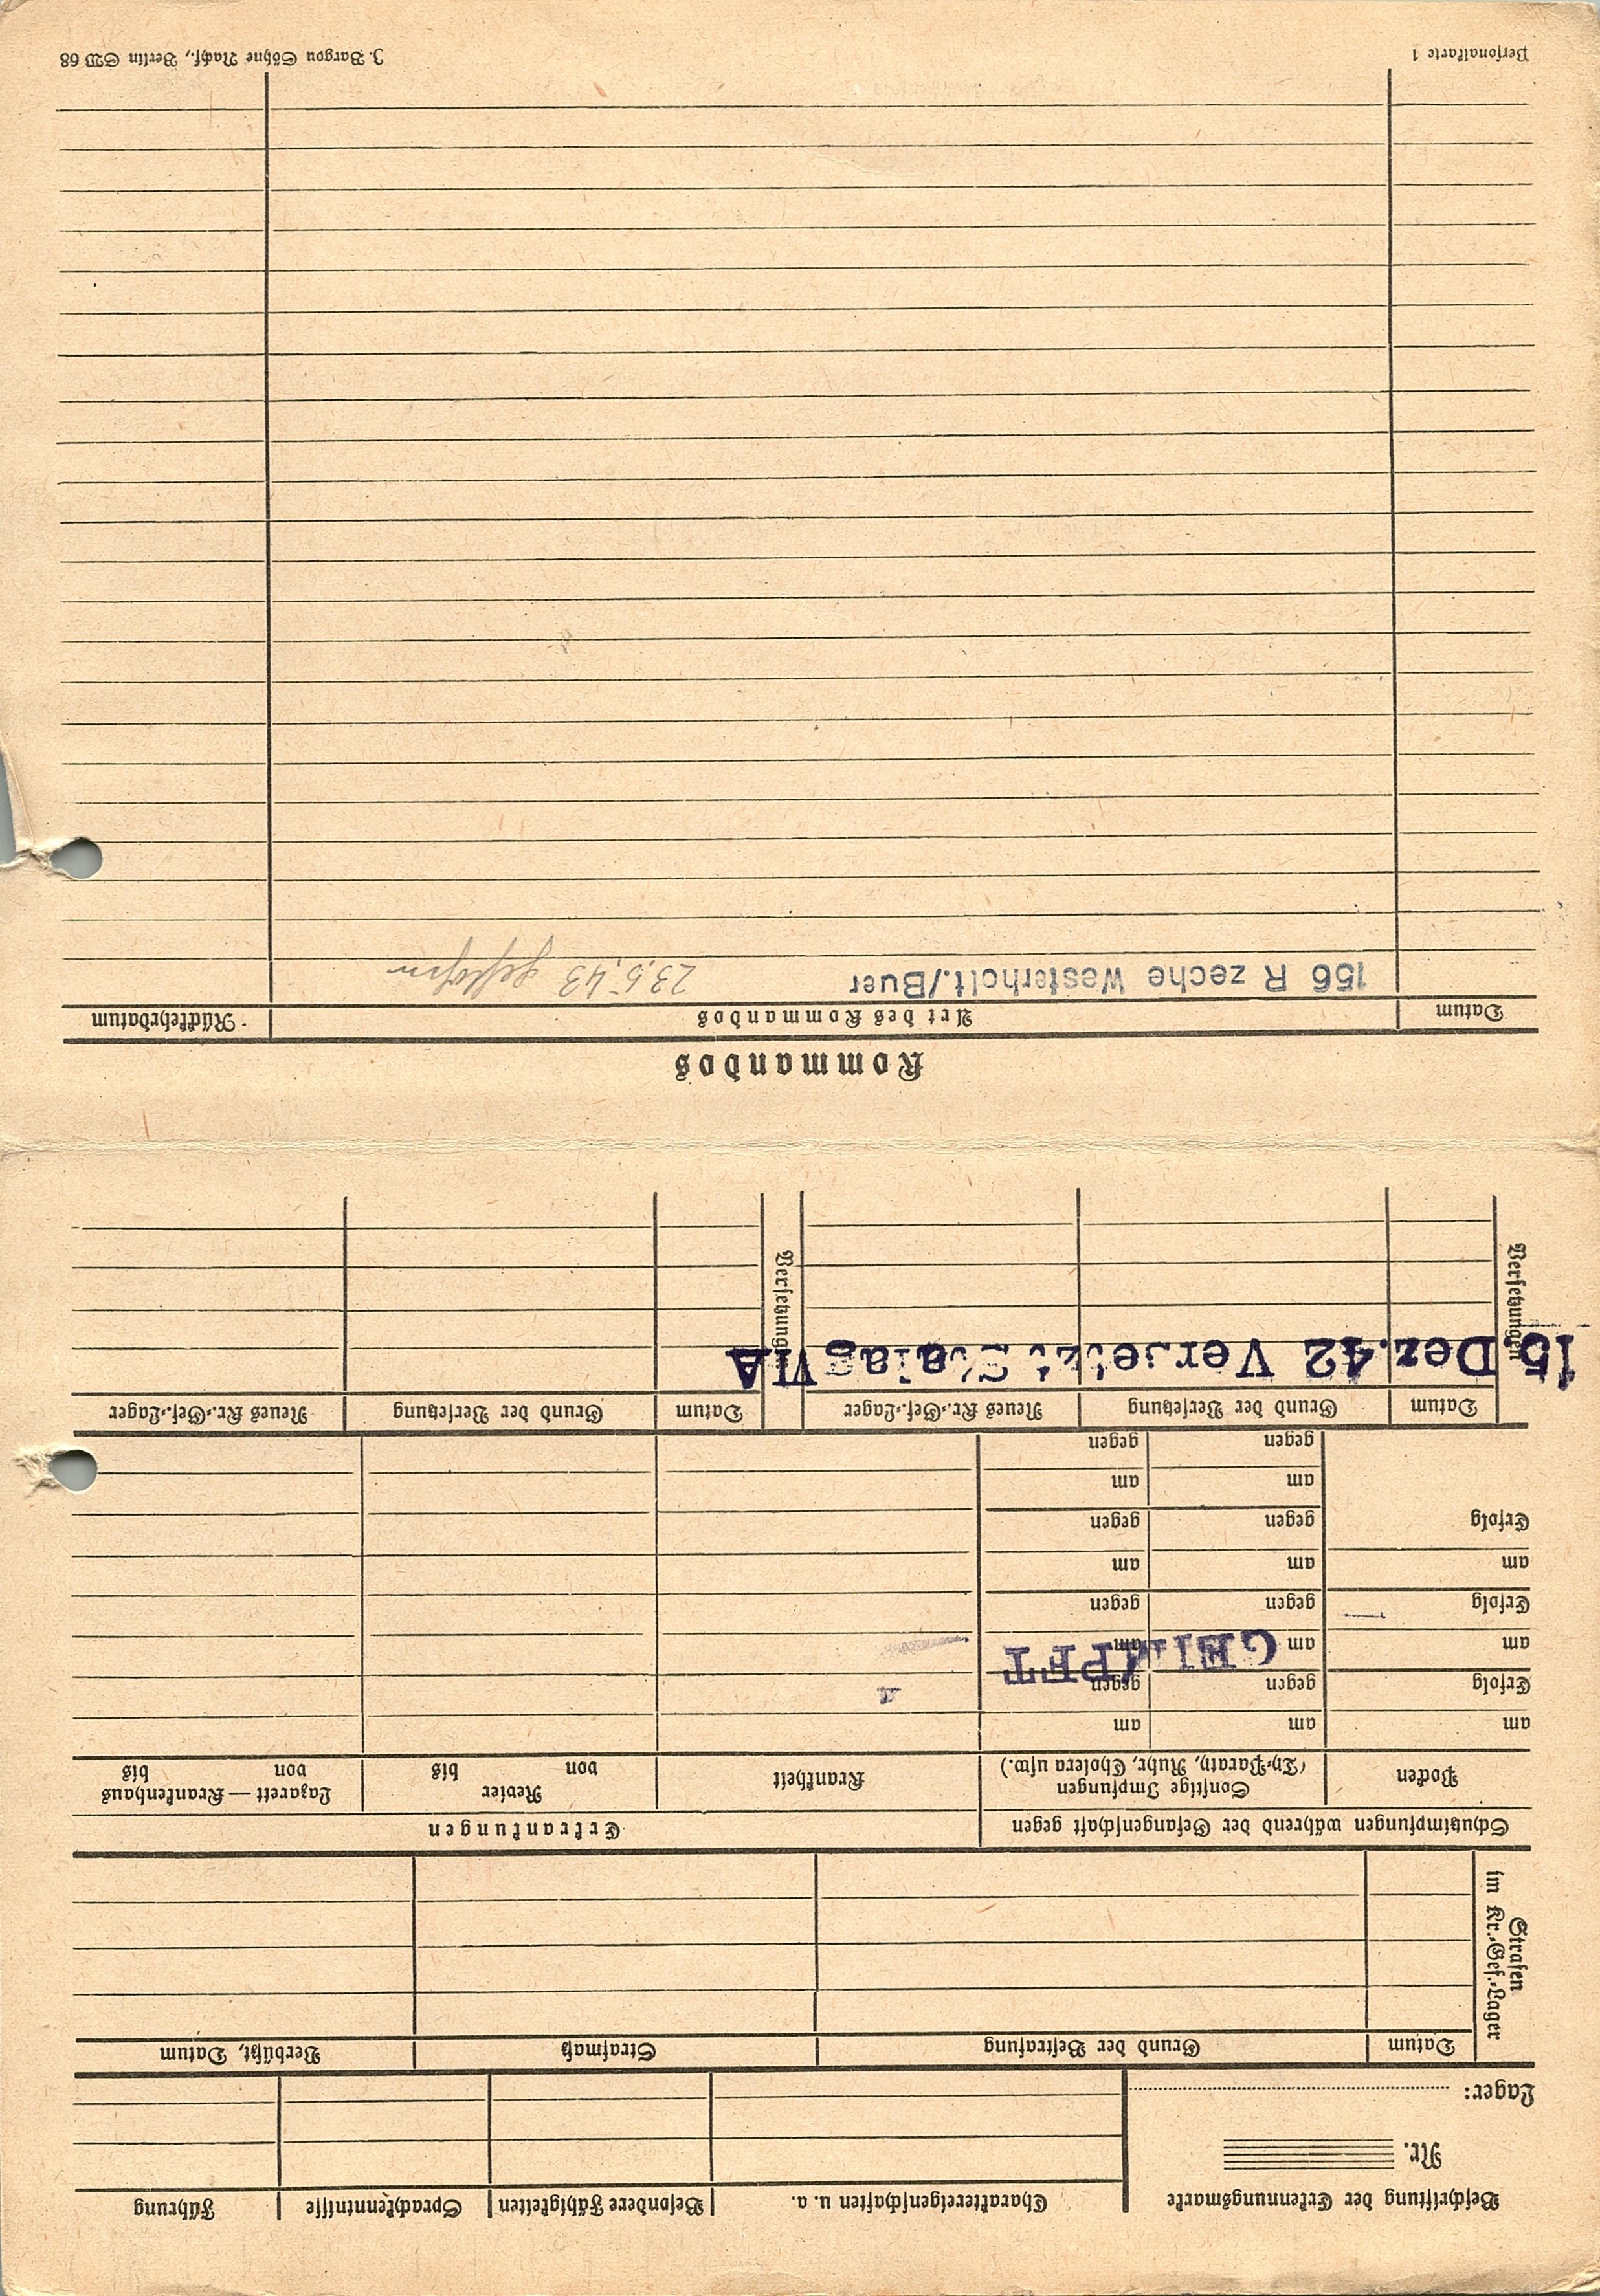 Beschriftung der Erkennungsmarke
Nr.
Lager:
Charaktereigenschaften u. a.
Besondere Fähigkeiten
Sprachkenntnisse
Führung
Strafen
im Kr.-Gef.-Lager
Datum
Grund der Bestrafung
Strafmaß
Verbüßt, Datum
Schutzimpfungen während der Gefangenschaft gegen
Erkrankungen
Pocken
Sonstige Impfungen
(Ty-Paraty, Ruhr, Cholera usw.)
Krankheit
Revier
von bis
Lazarett — Krankenhaus
von bis
am am am
Erfolg gegen gegen
am am am
GEIMPFT
Erfolg gegen gegen
am am am
Erfolg gegen gegen
am am
gegen gegen
Versetzungen
Datum
Grund der Versetzung
Neues Kr.-Gef.-Lager
Versetzungen
Datum
Grund der Versetzung
Neues Kr.-Gef.-Lager
15 Dez. 42 Versetzt Stalag VIA
Kommandos
Datum
Art des Kommandos
Rückkehrdatum
156 R zeche Westerholt./Buer 23.5.43 geflohen
Personalkarte 1
J. Bargou Söhne Nachf., Berlin SW 68